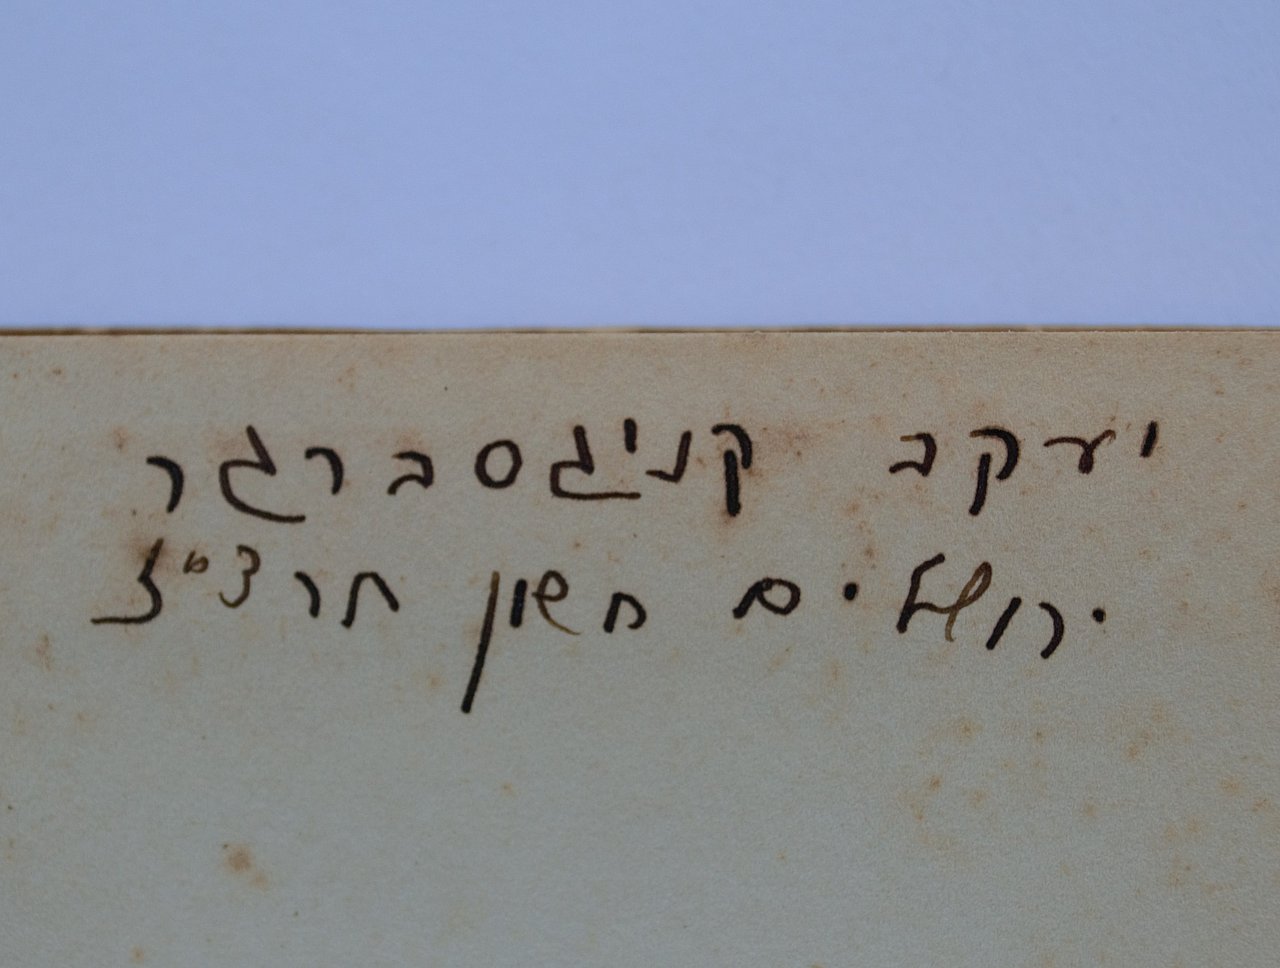 יעקב קניגסברגר
ירושלים חשון תרצ"ז